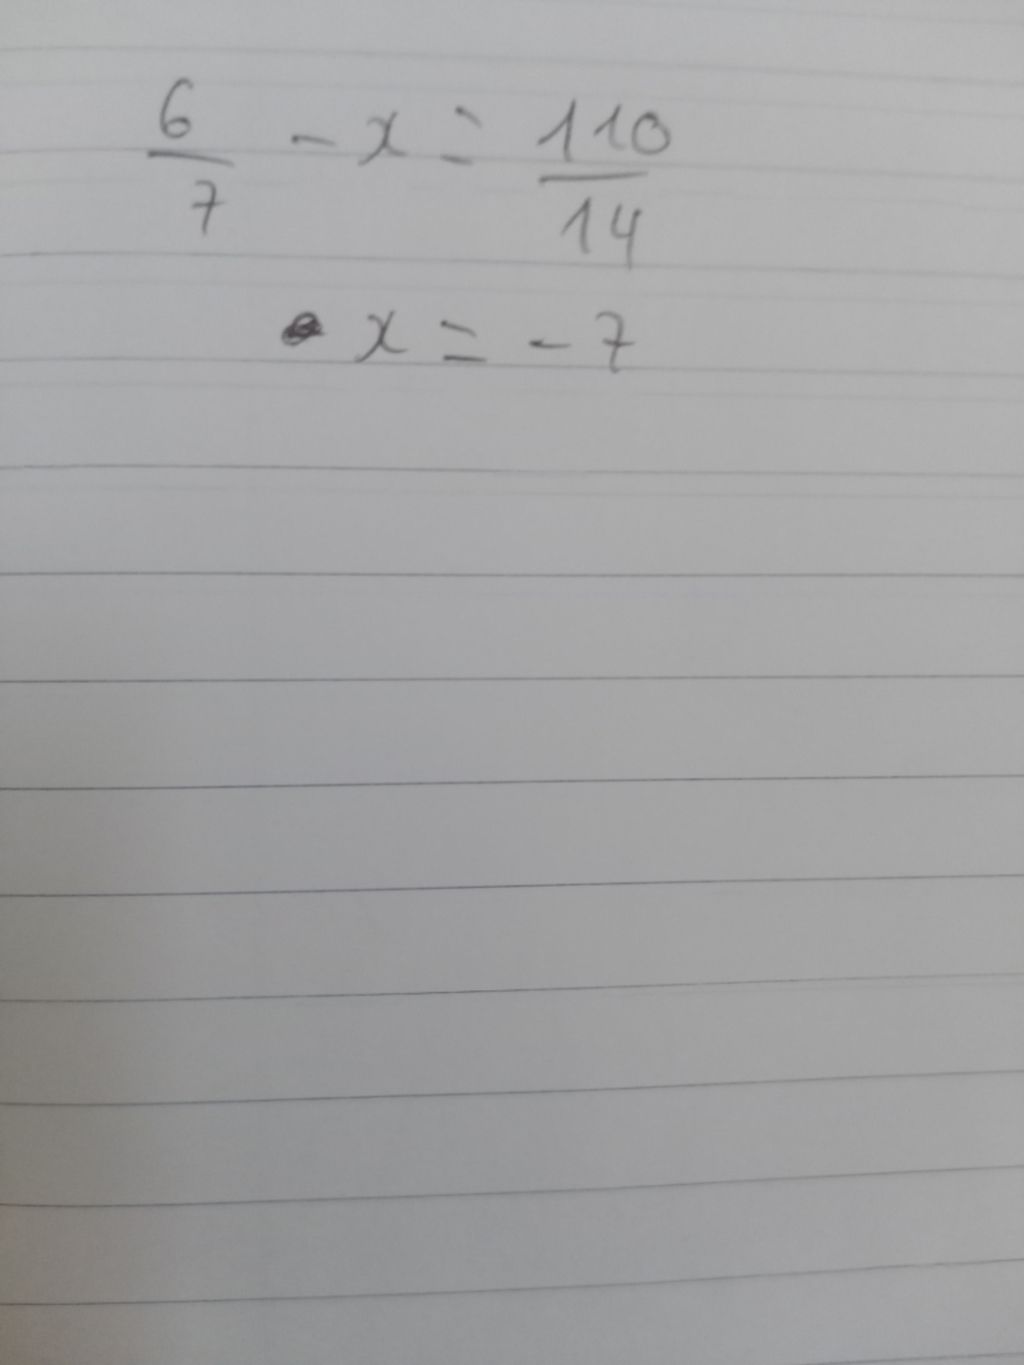 6/7 - x = 110/14
x = -7